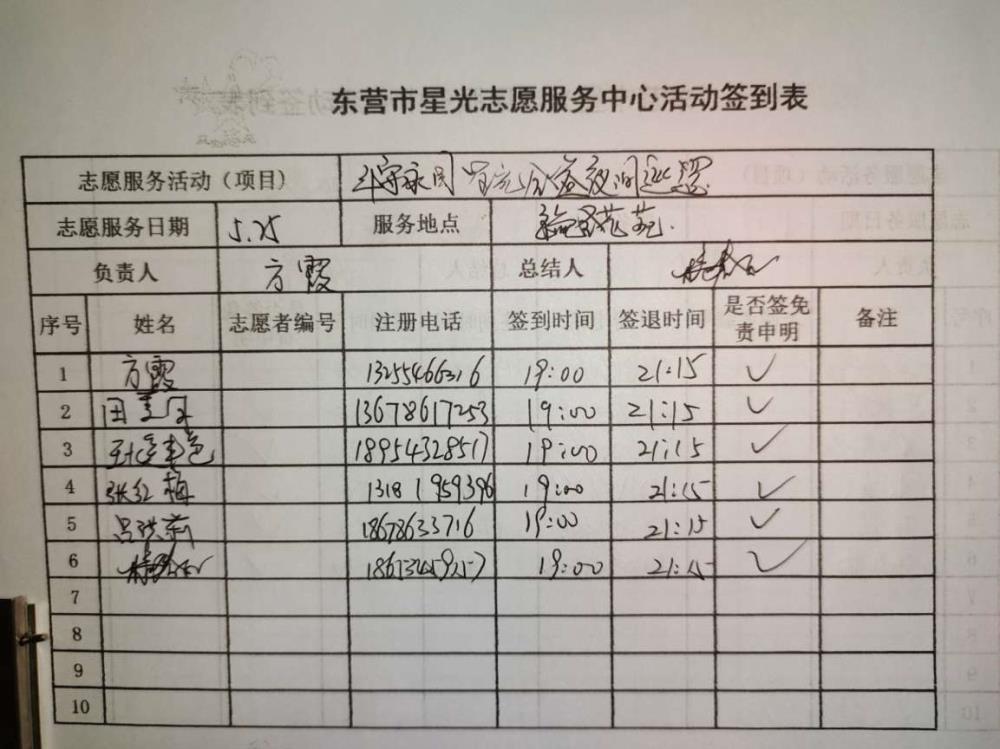 东营市星光志愿服务中心活动签到表
志愿服务活动（项目）
志愿服务日期 5.25 服务地点
负责人 方霞 总结人
序号 姓名 志愿者编号 注册电话 签到时间 签退时间 是否签免责申明 备注
1 方霞 13255466316 19:00 21:15 ✓
2 13678617253 19:00 21:15 ✓
3 18954328517 19:00 21:15 ✓
4 张红梅 1318 1959396 19:00 21:15 ✓
5 吕洪莉 18678633716 19:00 21:15 ✓
6 19:00 21:15 ✓
7
8
9
10